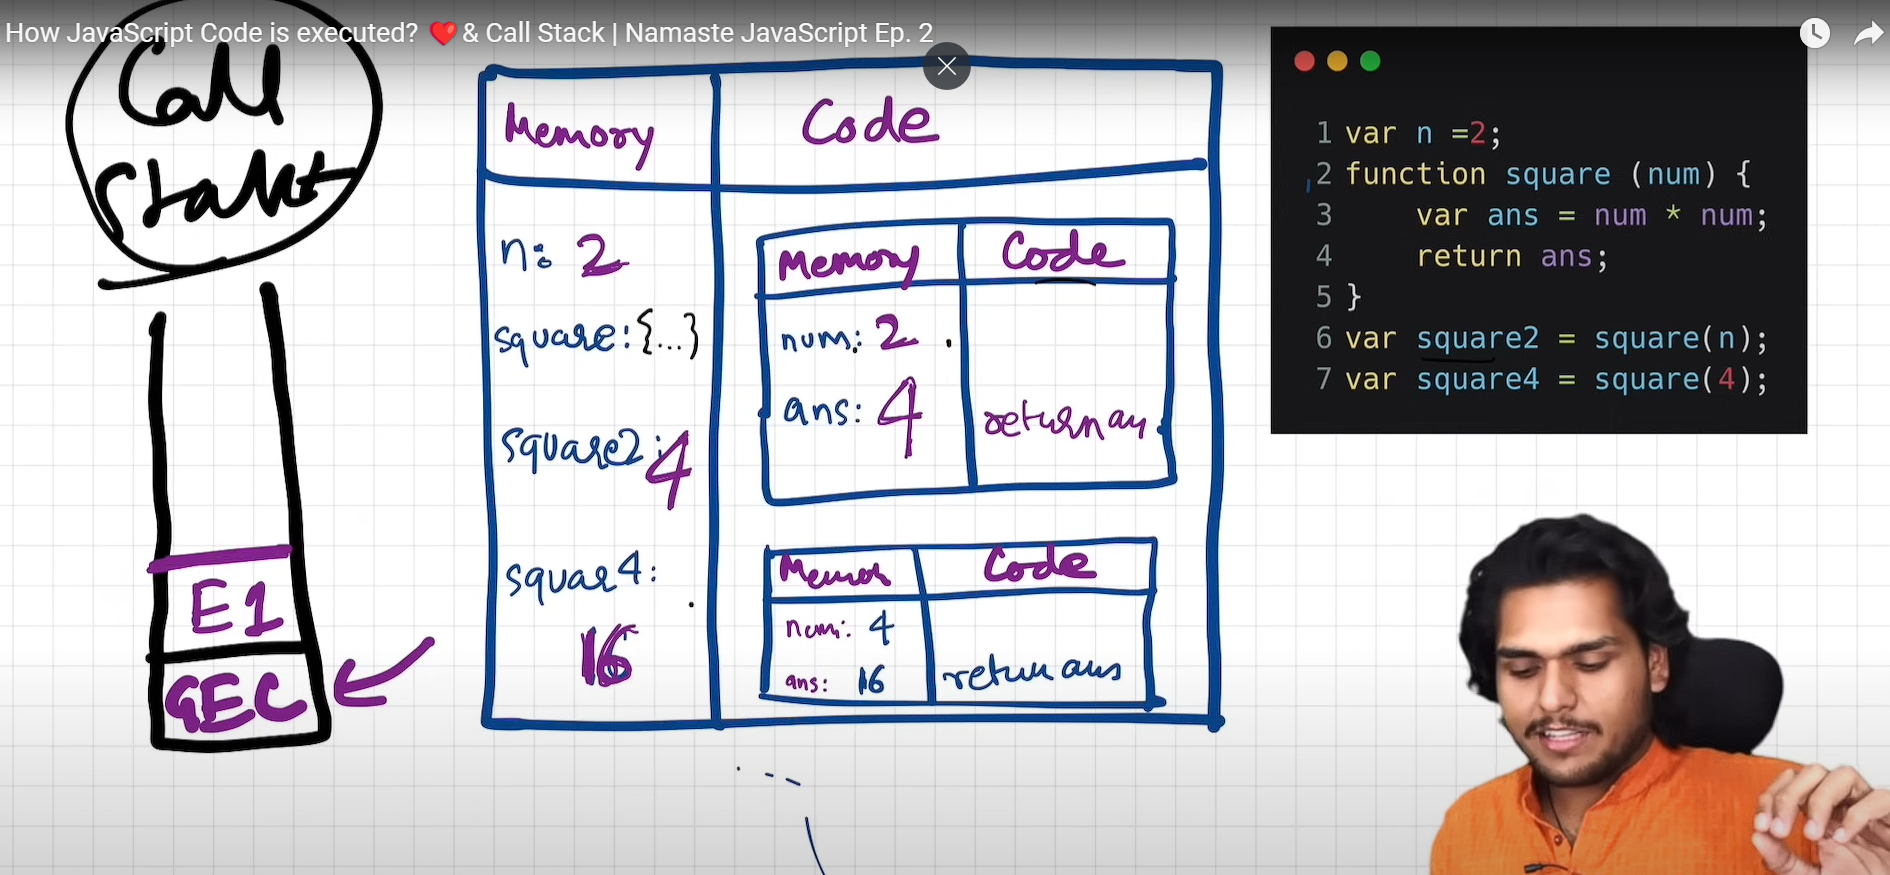 How JavaScript Code is executed? ❤️& Call Stack | Namaste JavaScript Ep. 2
Call
Stack
E1
GEC
Memory
Code
n: 2
square:{...}
square2: 4
squar4:
16
Memory
Code
num: 2
ans: 4
return an
Code
num: 4
ans: 16
return ans
1 var n =2;
2 function square (num) {
3 var ans = num * num;
4 return ans;
5 }
6 var square2 = square(n);
7 var square4 = square(4);